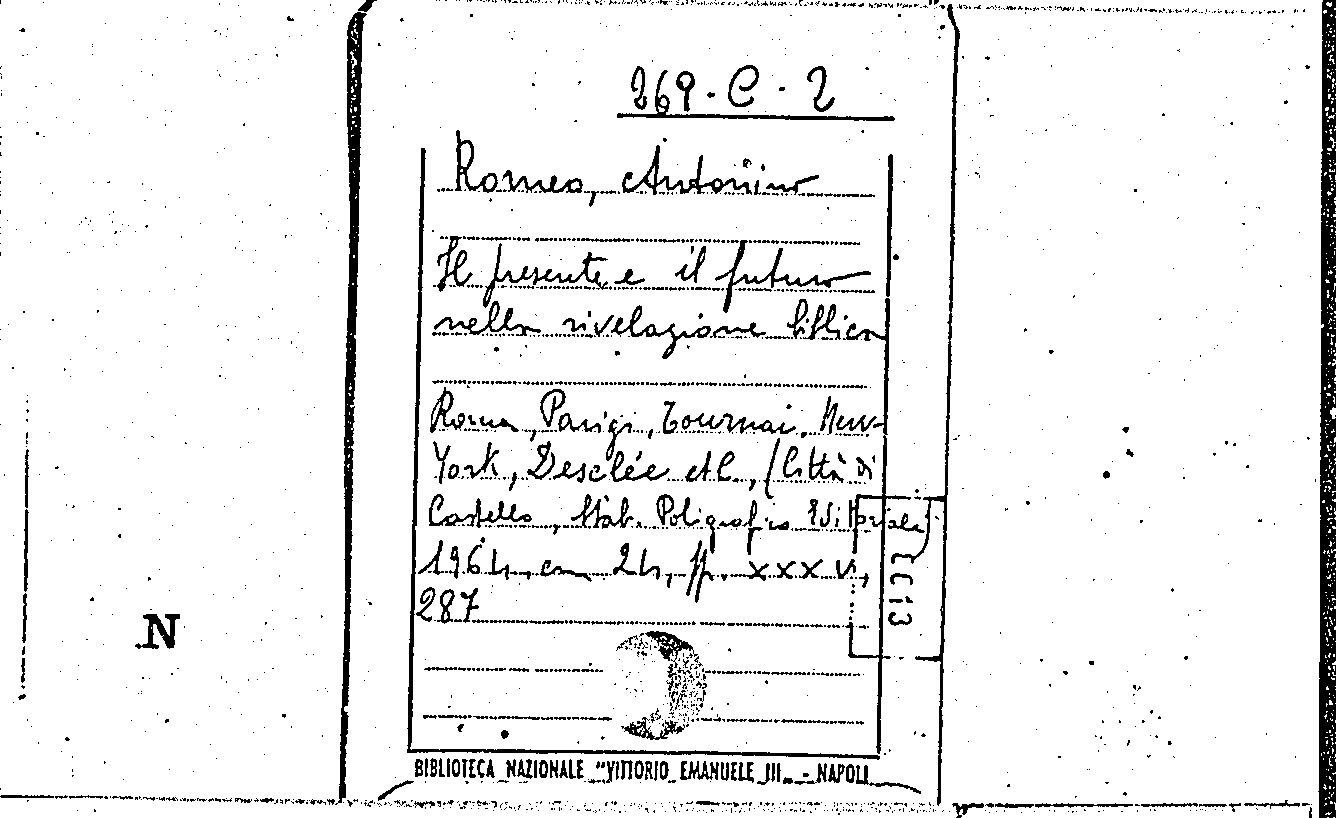 269.C.2
Romeo, Antonino
Il presente e il futuro
nella rivelazione biblica
Roma, Parigi, Tournai, New-
York, Desclée etC., (Città di
Castello, Stab. Poligrafico Editoriale)
1964, cm 24, pp. XXXVI,
287
N
BIBLIOTECA NAZIONALE "VITTORIO EMANUELE III" - NAPOLI